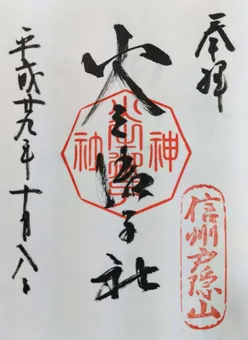 奉拝
信州戸隠山
火之御子社
平成廿九年十月八日